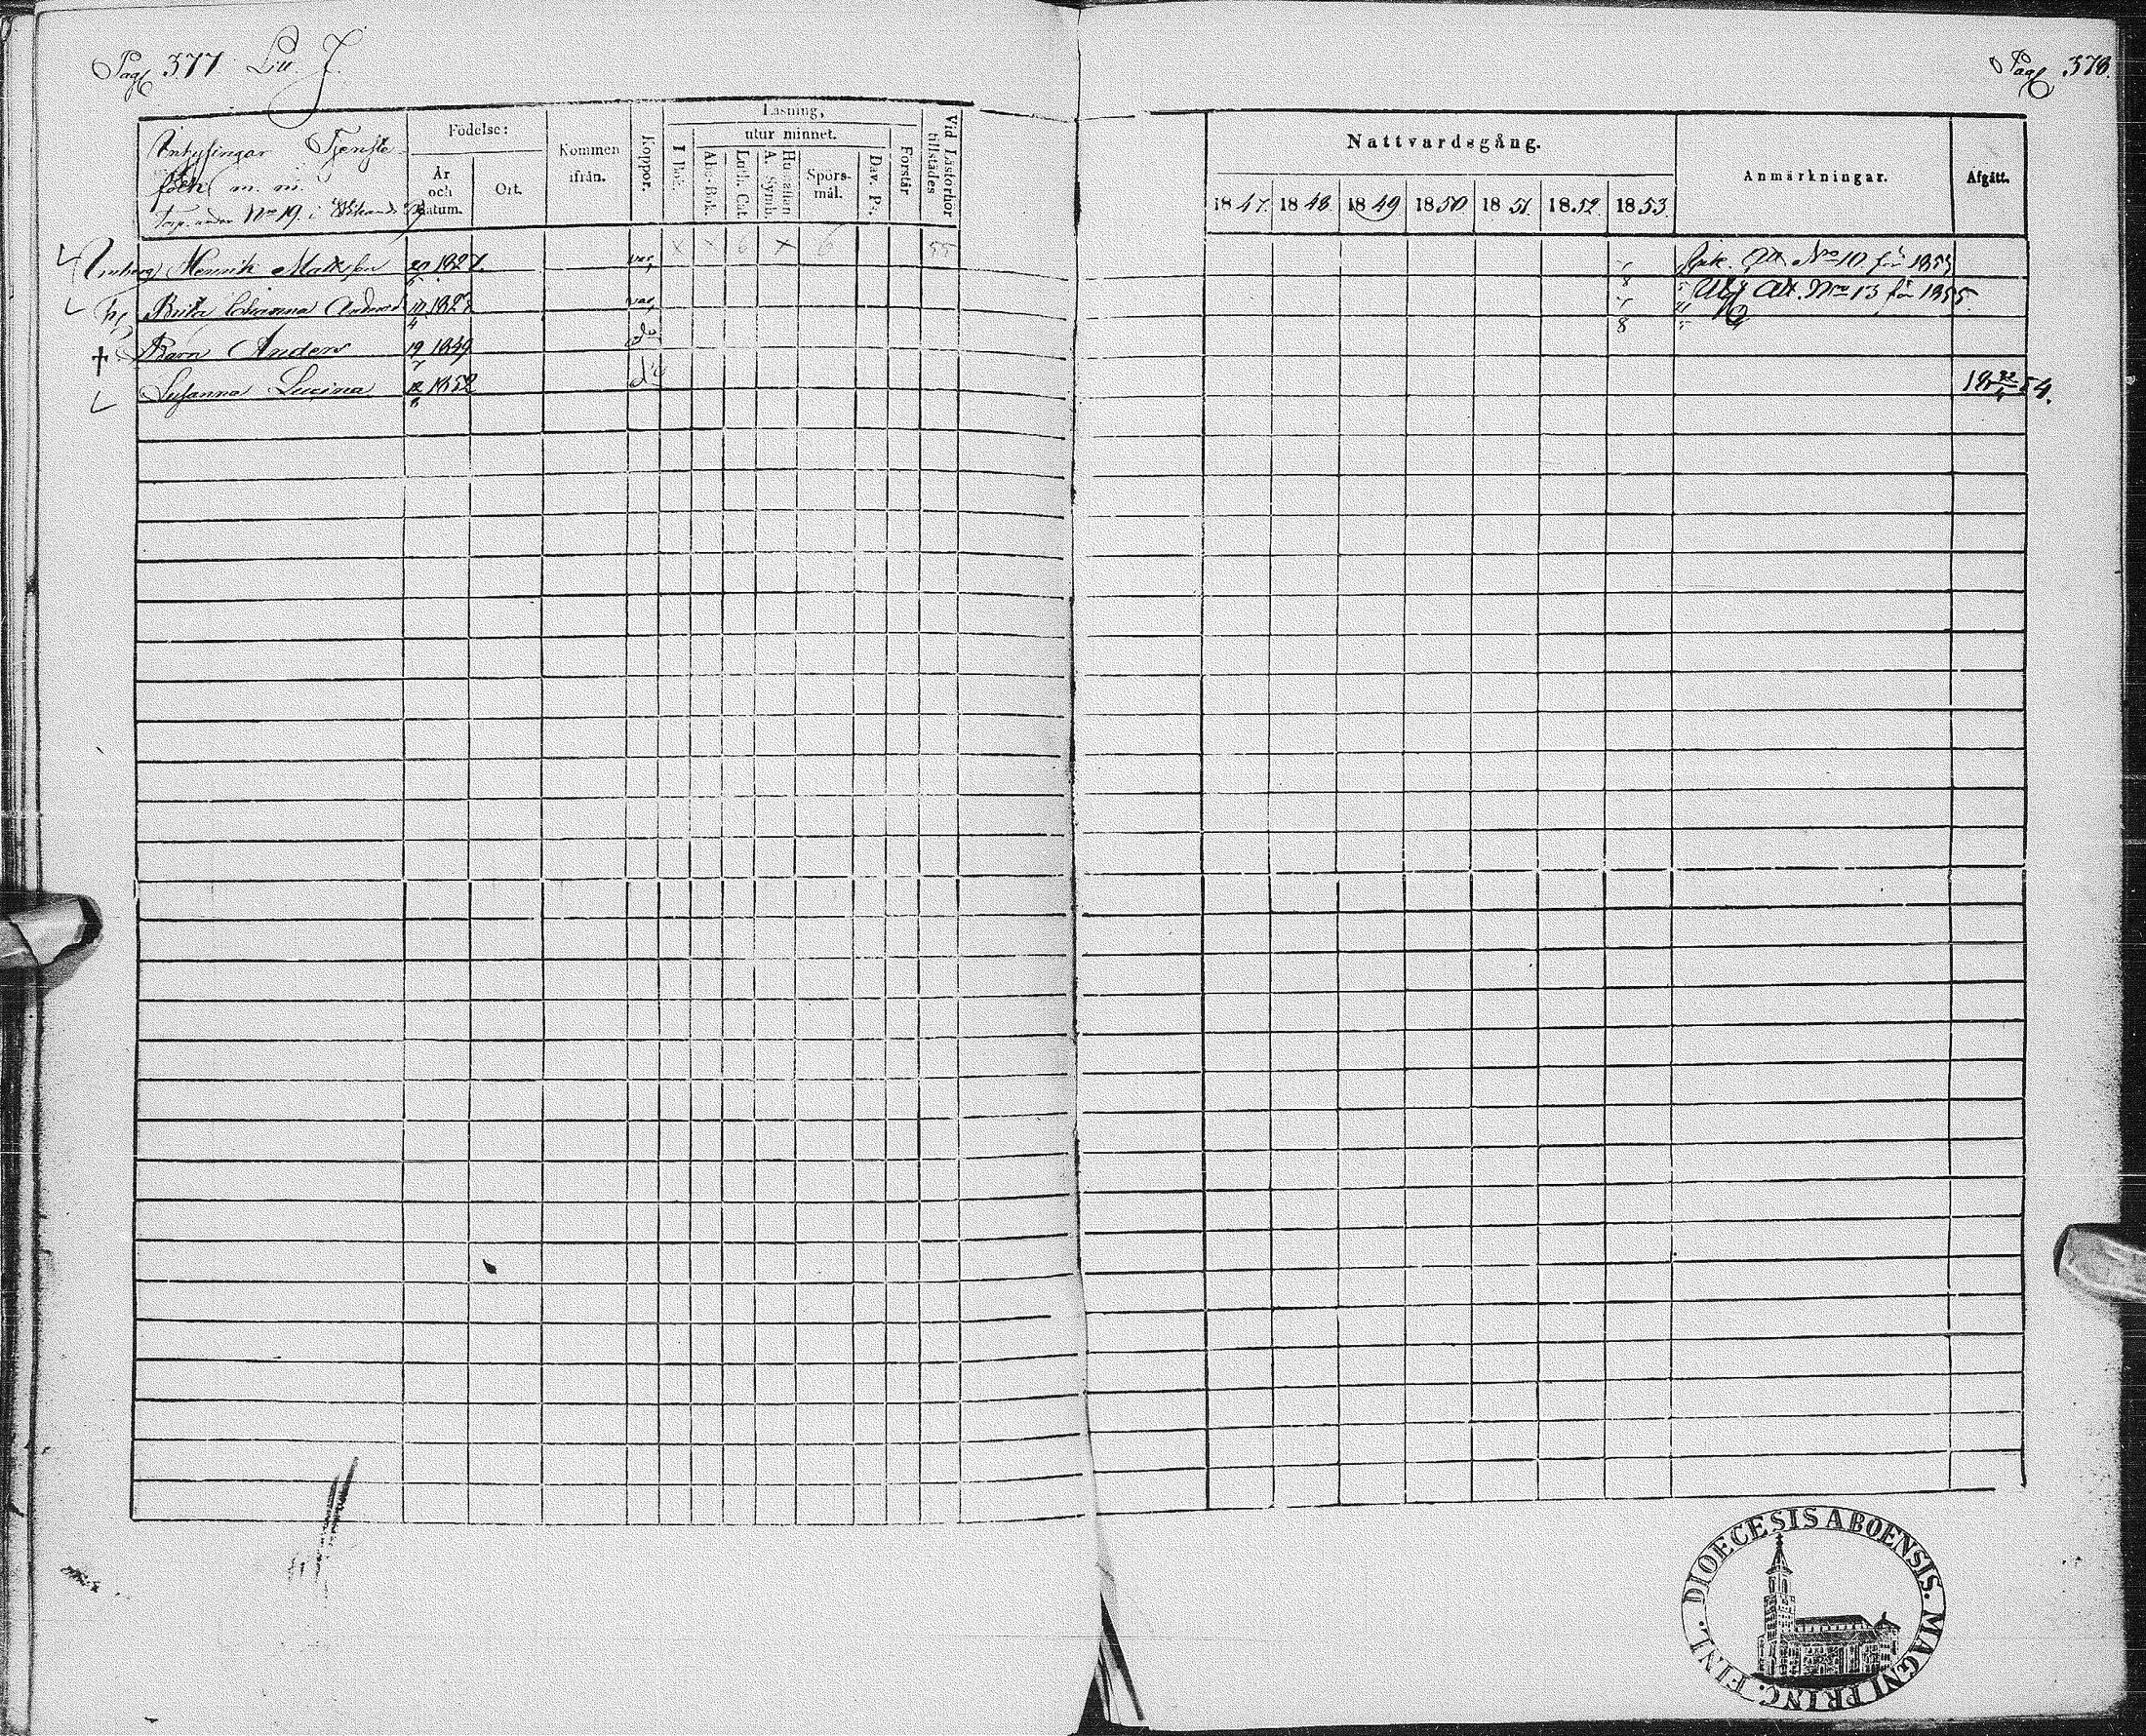 Pag 377 Litt. J.
Pag 378.
Inhysingar Tjenste
folk m. m.
Torp under No 19 i
Födelse:
År och Datum.
Ort.
Kommen ifrån.
Koppor.
Läsning,
I Bok.
utur minnet.
Abc-Bok.
Luth. Cat.
Hustaflan A. Symb.
Spörs-mål.
Dav. Ps.
Förstår
Vid Läsförhör tillstädes
Nattvardsgång.
1847. 1848 1849 1850 1851. 1852. 1853.
Anmärkningar.
Afgått.
Henrik Matsson 20 1827. vac. x x 6 x 6 55 Att No 10 för 1855
h. Brita Johanna Andersd 10/4 1827 vac. 8 Att. No 13 för 1855.
† Barn Anders 19/7 1849 do 8
Susanna Lucina 12/8 1852 do 18 22/4 54.
DIOECESIS ABOENSIS. MAGNI PRINC. FINL.